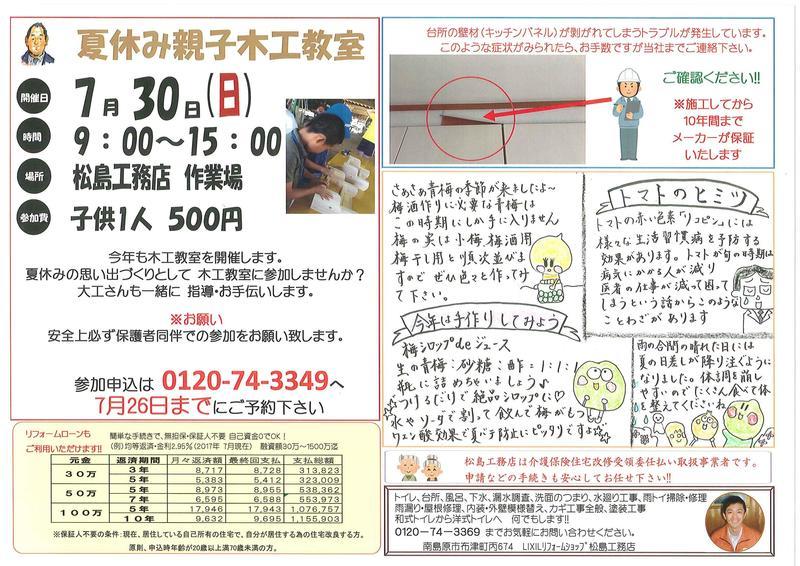 夏休み親子木工教室
開催日 7月30日(日)
時間 9：00～15：00
場所 松島工務店 作業場
参加費 子供1人 500円
今年も木工教室を開催します。
夏休みの思い出づくりとして 木工教室に参加しませんか？
大工さんも一緒に 指導・お手伝いします。
※お願い
安全上必ず保護者同伴での参加をお願い致します。
参加申込は 0120-74-3349へ
7月26日までにご予約下さい
リフォームローンも
ご利用いただけます!!
簡単な手続きで、無担保・保証人不要 自己資金0でOK！
(例)均等返済・金利2.95% (2017年 7月現在) 融資額30万～1500万迄
元金 返済期間 月々返済額 最終回支払 支払総額
30万 3年 8,717 8,728 313,823
5年 5,383 5,412 323,009
50万 5年 8,973 8,955 538,362
7年 6,595 6,588 553,973
100万 5年 17,946 17,943 1,076,757
10年 9,632 9,695 1,155,903
※保証人不要の条件：現在、居住している自己所有の住宅で、自分が居住する為の住宅改良する方。
原則、申込時年齢が20歳以上満70歳未満の方。
台所の壁材（キッチンパネル）が剥がれてしまうトラブルが発生しています。
このような症状がみられたら、お手数ですが当社までご連絡下さい。
ご確認ください!!
※施工してから
10年間まで
メーカーが保証
いたします
さぁさぁ青梅の季節が来ましたよ～
梅酒作りに必要な青梅は
この時期にしか手に入りません
梅の実は小梅、梅酒用
梅干し用と順次並びま
すので ぜひ色々と作ってみ
て下さい。
今年は手作りしてみよう
梅シロップdeジュース
生の青梅：砂糖：酢＝1：1：1
瓶に詰めちゃいましょう♪
つけるだけで絶品シロップに♡
水やソーダで割って飲んで梅がもつ
クエン酸効果で夏バテ防止にピッタリですよ☆
トマトのヒミツ
トマトの赤い色素「リコピン」には
様々な生活習慣病を予防する
効果があります。トマトが旬の時期は
病気にかかる人が減り
医者の仕事が減って困って
しまうという話からこのような
ことわざがあります
雨の合間の晴れた日には
夏の日差しが降り注ぐように
なりました。体調を崩し
やすいのでたくさん食べて体
を整えてくださいね
松島工務店は介護保険住宅改修受領委任払い取扱事業者です。
申請などの手続きも安心してお任せ下さい!!
トイレ、台所、風呂、下水、漏水調査、洗面のつまり、水廻り工事、雨トイ掃除・修理
雨漏り・屋根修理、内装・外壁模様替え、カギ工事全般、塗装工事
和式トイレから洋式トイレへ 何でもします!!
0120－74－3369 までお気軽にお問い合わせください。
南島原市布津町丙674 LIXILリフォームショップ松島工務店